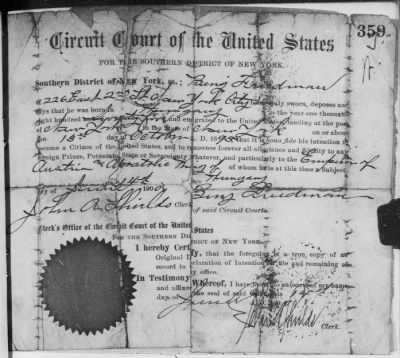 359
Circuit Court of the United States
FOR THE SOUTHERN DISTRICT OF NEW YORK.
Southern District of New York, ss.: Benj Friedman
of 226 East 2nd St New York City duly sworn, deposes and
says that he was born in the year one thousand
eight hundred and emigrated to the United States, landing at the port
of New York in the State of New York on or about
the day of A. D. that it is bona fide his intention to
become a Citizen of the United States, and to renounce forever all allegiance and fidelity to any
Foreign Prince, Potentate, State or Sovereignty whatever, and particularly to the Emperor of
Austria of whom he is at this time a Subject.
Hungary
day of 190 Benj Friedman
John A. Shields Clerk of said Circuit Courts.
Clerk's Office of the Circuit Court of the United States
FOR THE SOUTHERN DISTRICT OF NEW YORK
I hereby Certify, that the foregoing is a true copy of an
Original Declaration of Intention on file and remaining of
record in my office.
In Testimony Whereof, I have hereunto subscribed my name
and affixed the seal of said
day of June
John A. Shields Clerk.